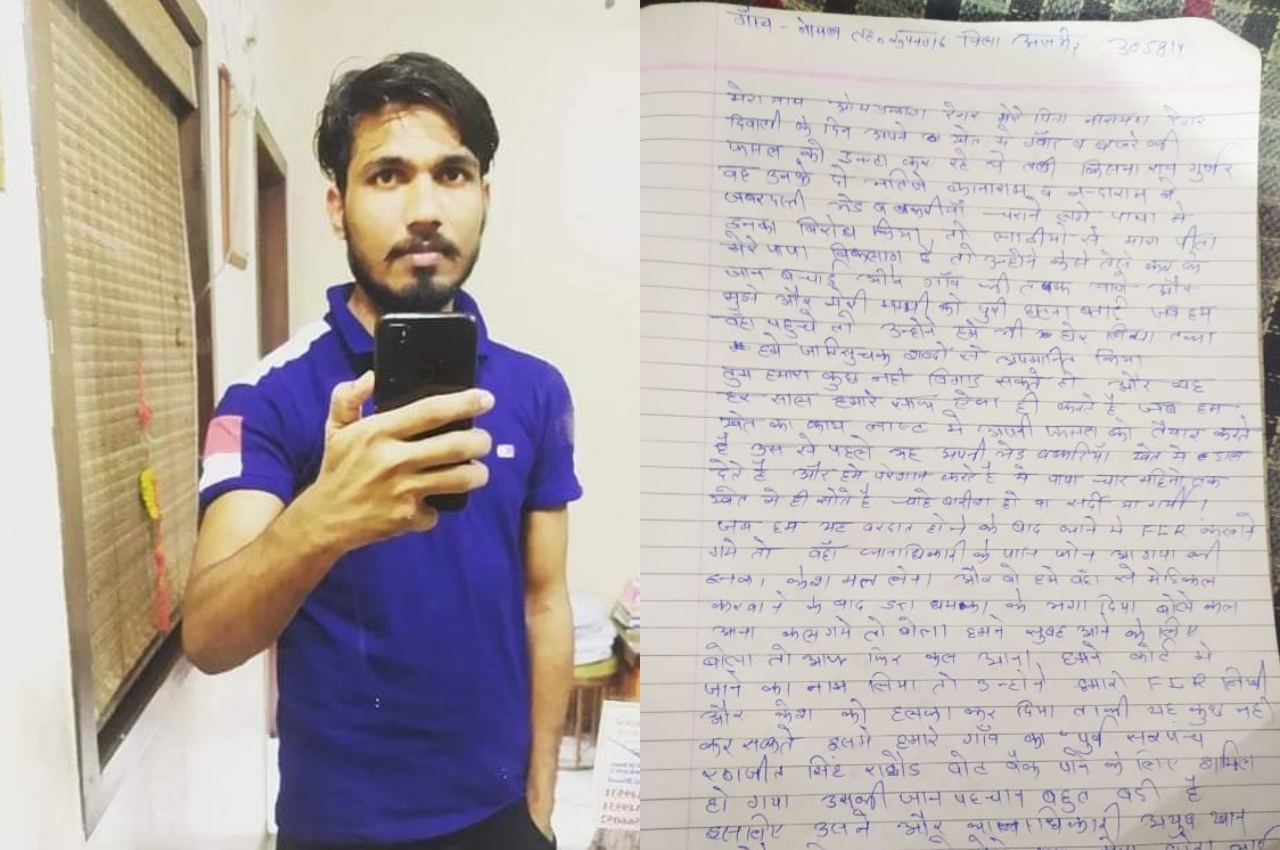 गाँव - नोपल तह० रुपनगढ जिला अजमेर 305814
मेरा नाम ओमप्रकाश रेगर मेरे पिता नारायण रेगर
दिवाली के दिन अपने खेत मे ग्वार व बाजरे की
फसल को इकटा कर रहे थे तभी किसना राम गुर्जर
वह उनके दो भतिजे कानाराम व नन्दाराम ने
जबरदस्ती भेड व बकरीयाँ चराने लगे पापा ने
इनका विरोध किया तो लाठीयो से मारा पीटा
मेरे पापा विकलाग है तो उन्होने केसे तेसे कर के
जान बचाई और गाँव की तरफ भागे और
मुझे और मेरी मम्मी को पुरी घटना बताई जब हम
वहा पहुचे तो उन्होने हमे भी
हमे जातिसुचक शब्दो से अपमानित किया
तुम हमारा कुछ नही बिगाड सकते हो और यह
हर साल हमारे साथ ऐसा ही करते है जब हम
खेत का काम लास्ट मे अपनी फसल को तैयार करते
है उस से पहले यह अपनी भेड बकरियाँ खेत मे डाल
देते है और हमे परेशान करते है मे पापा चार महिनो तक
खेत मे ही सोते है चाहे बारीश हो या सर्दी या गर्मी।
जब हम यह वरदात होने के बाद थाने मे FIR करवाने
गये तो वहाँ थानाधिकारी के पास फोन आ गया की
इनका केश मत लेना और वो हमे वहाँ से मेडिकल
करवाने के बाद डरा धमका के भगा दिया बोले कल
आना कल गये तो बोला हमने सुबह आने के लिए
बोला तो आज फिर कल आना हमने कोर्ट मे
जाने का नाम लिया तो उन्होने हमारी FIR लिखी
और केश को हलका कर दिया ताकी यह कुछ नही
कर सकते इसमे हमारे गाँव का पुर्व सरपंच
रणजीत सिंह राठौड वोट बैंक पाने के लिए शामिल
हो गया उसकी जान पहचान बहुत बडी है
इसलिए उसने और थानाधिकारी अयुब खान